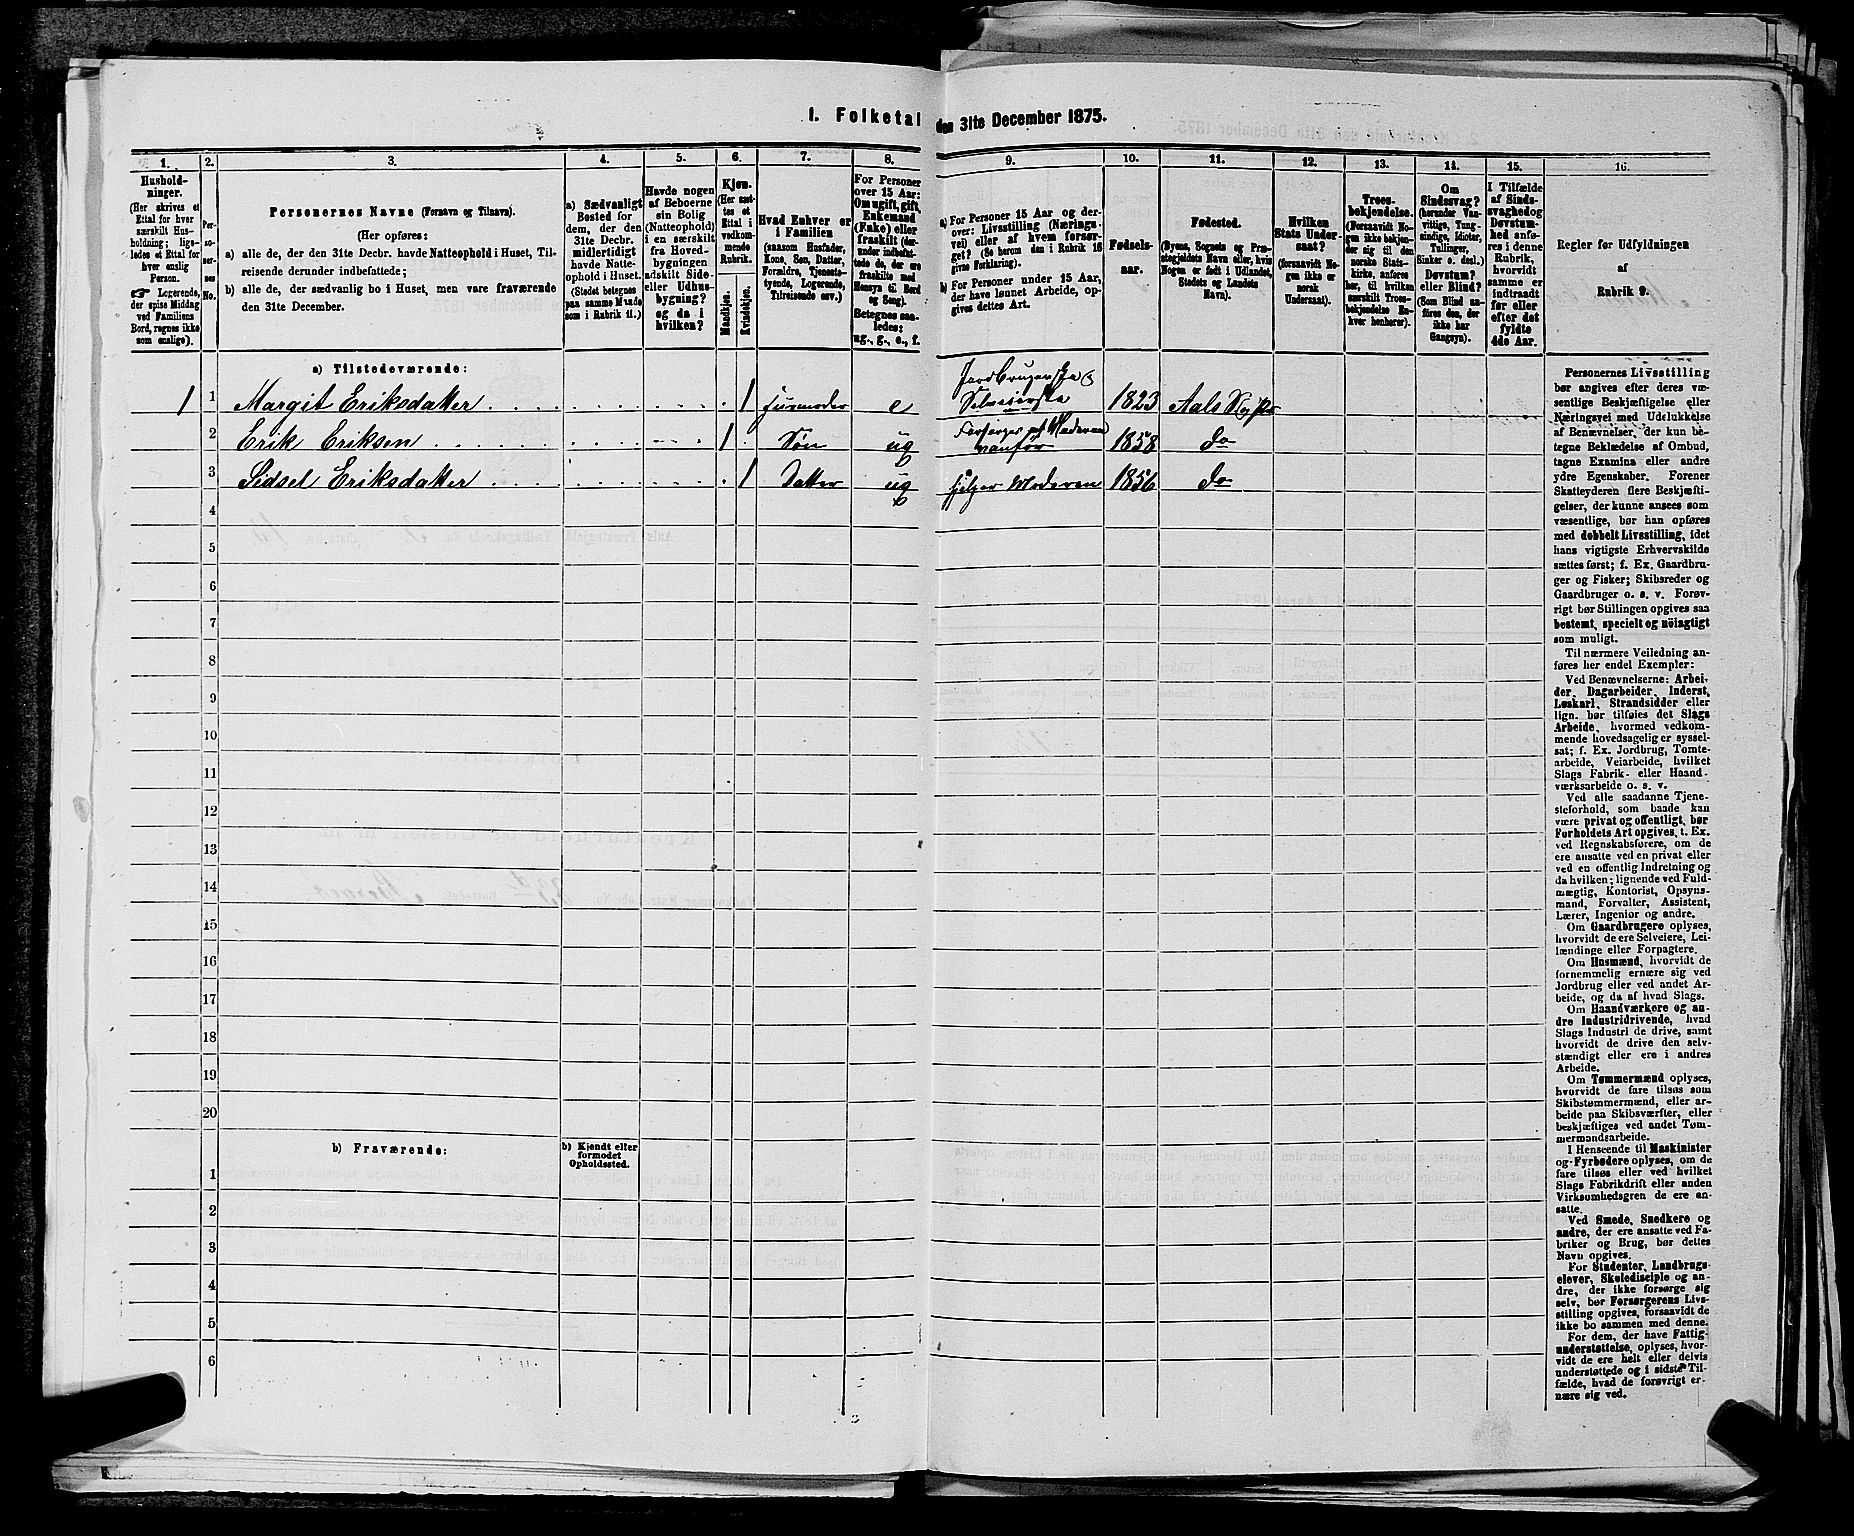 1. Folketal den 31te December 1875.
1. 2. 3. 4. 5. 6. 7. 8. 9. 10. 11. 12. 13. 14. 15. 16.
Hushold-
ninger.
(Her skrives et
Ettal for hver
særskilt Hus-
holdning; lige-
ledes et Ettal for
hver enslig
Person.
☞ Logerende,
der spise Middag
ved Familiens
Bord, regnes ikke
som enslige).
Per-
so-
ner-
nes
No.
Personernes Navne (Fornavn og Tilnavn).
(Her opføres:
a) alle de, der den 31te Decbr. havde Natteophold i Huset, Til-
reisende derunder indbefattede;
b) alle de, der sædvanlig bo i Huset, men vare fraværende
den 31te December.
a) Sædvanligt
Bosted for
dem, der den
31te Decbr.
midlertidigt
havde Natte-
ophold i Huset.
(Stedet betegnes
paa samme Maade
som i Rubrik 11.)
Havde nogen
af Beboerne
sin Bolig
(Natteophold)
i en særskilt
fra Hoved-
bygningen
adskilt Side-
eller Udhus-
bygning?
og da i
hvilken?
Kjøn.
(Her sæt-
tes et
Ettal i
vedkom-
mende
Rubrik.
Mandkjøn.
Kvindekjøn.
Hvad Enhver er
i Familien
(saasom Husfader,
Kone, Søn, Datter,
Forældre, Tjeneste-
tyende, Logerende,
Tilreisende osv.)
For Personer
over 15 Aar:
Om ugift, gift,
Enkemand
(Enke) eller
fraskilt (der-
under indbefat-
tede de, der ere
fraskilte med
Hensyn til Bord
og Seng).
Betegnes saa-
ledes:
ug., g., e., f.
a) For Personer 15 Aar og der-
over: Livsstilling (Nærings-
vei) eller af hvem forsør-
get? (Se herom den i Rubrik 16
givne Forklaring).
b) For Personer under 15 Aar,
der have lønnet Arbeide, op-
gives dettes Art.
Fødsels-
aar.
Fødested.
(Byens, Sognets og Præ-
stegjeldets Navn eller, hvis
Nogen er født i Udlandet,
Stedets og Landets
Navn).
Hvilken
Stats Under-
saat?
(forsaavidt No-
gen ikke er
norsk
Undersaat).
Troes-
bekjendelse.
(Forsaavidt No-
gen ikke bekjen-
der sig til den
norske Stats-
kirke, anføres
her, til hvilken
særskilt Troes-
bekjendelse En-
hver henhører).
Om
Sindssvag?
(herunder Van-
vittige, Tung-
sindige, Idioter,
Tullinger,
Sinker o. desl.)
Døvstum?
eller Blind?
(Som Blind an-
føres den, der
ikke har
Gangsyn).
I Tilfælde
af Sinds-
svaghed og
Døvstum-
hed anfø-
res i denne
Rubrik,
hvorvidt
samme er
indtraadt
før eller
efter det
fyldte
4de Aar.
Regler før Udfyldningen
af
Rubrik 9.
a) Tilstedeværende:
Jordbruger Ja
1 1 Margit Eriksdatter 1 Husmoder e Selveierske 1823 Aals
2 Erik Eriksen 1 Søn ug Forsørges af Moderen vanfør 1858 do
3 Sidsel Eriksdatter 1 Datter ug hjelper Moderen 1856 do
4
5
6
7
8
9
10
11
12
13
14
15
16
17
18
19
20
b) Fraværende:
b) Kjendt eller
formodet
Opholdssted.
1
2
3
4
5
6
Personernes Livsstilling
bør angives efter deres væ-
sentlige Beskjæftigelse eller
Næringsvei med Udelukkelse
af Benævnelser, der kun be-
tegne Beklædelse af Ombud,
tagne Examina eller andre
ydre Egenskaber. Forener
Skatteyderen flere Beskjæfti-
gelser, der kunne ansees som
væsentlige, bør han opføres
med dobbelt Livsstilling, idet
hans vigtigste Erhvervskilde
sættes først; f. Ex. Gaardbru-
ger og Fisker; Skibsreder og
Gaardbruger o. s. v. Forøv-
rigt bør Stillingen opgives saa
bestemt, specielt og nöiagtigt
som muligt.
Til nærmere Veiledning an-
føres her endel Exempler:
Ved Benævnelserne: Arbei-
der, Dagarbeider, Inderst,
Løskarl, Strandsidder eller
lign. bør tilføies det Slags
Arbeide, hvormed vedkom-
mende hovedsagelig er syssel-
sat; f. Ex. Jordbrug, Tomte-
arbeide, Veiarbeide, hvilket
Slags Fabrik- eller Haand-
værksarbeide o. s. v.
Ved alle saadanne Tjene-
steforhold, som baade kan
være privat og offentligt, bør
Forholdets Art opgives, t. Ex.
ved Regnskabsførere, om de
ere ansatte ved en privat eller
ved en offentlig Indretning og
da hvilken; lignende ved Fuld-
mægtig, Kontorist, Opsyns-
mand, Forvalter, Assistent,
Lærer, Ingeniør og andre.
Om Gaardbrugere oplyses,
hvorvidt de ere Selveiere, Lei-
lændinge eller Forpagtere.
Om Husmænd, hvorvidt de
fornemmelig ernære sig ved
Jordbrug eller ved andet Ar-
beide, og da af hvad Slags.
Om Haandværkere og an-
dre Industridrivende, hvad
Slags Industri de drive, samt
hvorvidt de drive den selv-
stændigt eller ere i andres
Arbeide.
Om Tømmermænd oplyses,
hvorvidt de fare tilsøs som
Skibstømmermænd, eller ar-
beide paa Skibsværfter, eller
beskjæftiges ved andet Tøm-
mermandsarbeide.
I Henseende til Maskinister
og Fyrbødere oplyses, om de
fare tilsøs eller ved hvilket
Slags Fabrikdrift eller anden
Virksomhedsgren de ere an-
satte.
Ved Smede, Snedkere og
andre, der ere ansatte ved Fa-
briker og Brug, bør dettes
Navn opgives.
For Studenter, Landbrugs-
elever, Skoledisciple og an-
dre, der ikke forsørge sig
selv, bør Forsørgerens Livs-
stilling opgives, forsaavidt de
ikke bo sammen med denne.
For dem, der have Fattig-
understøttelse, oplyses, hvor-
vidt de ere helt eller delvis
understøttede og i sidste Til-
fælde, hvad de forøvrigt er-
nære sig ved.